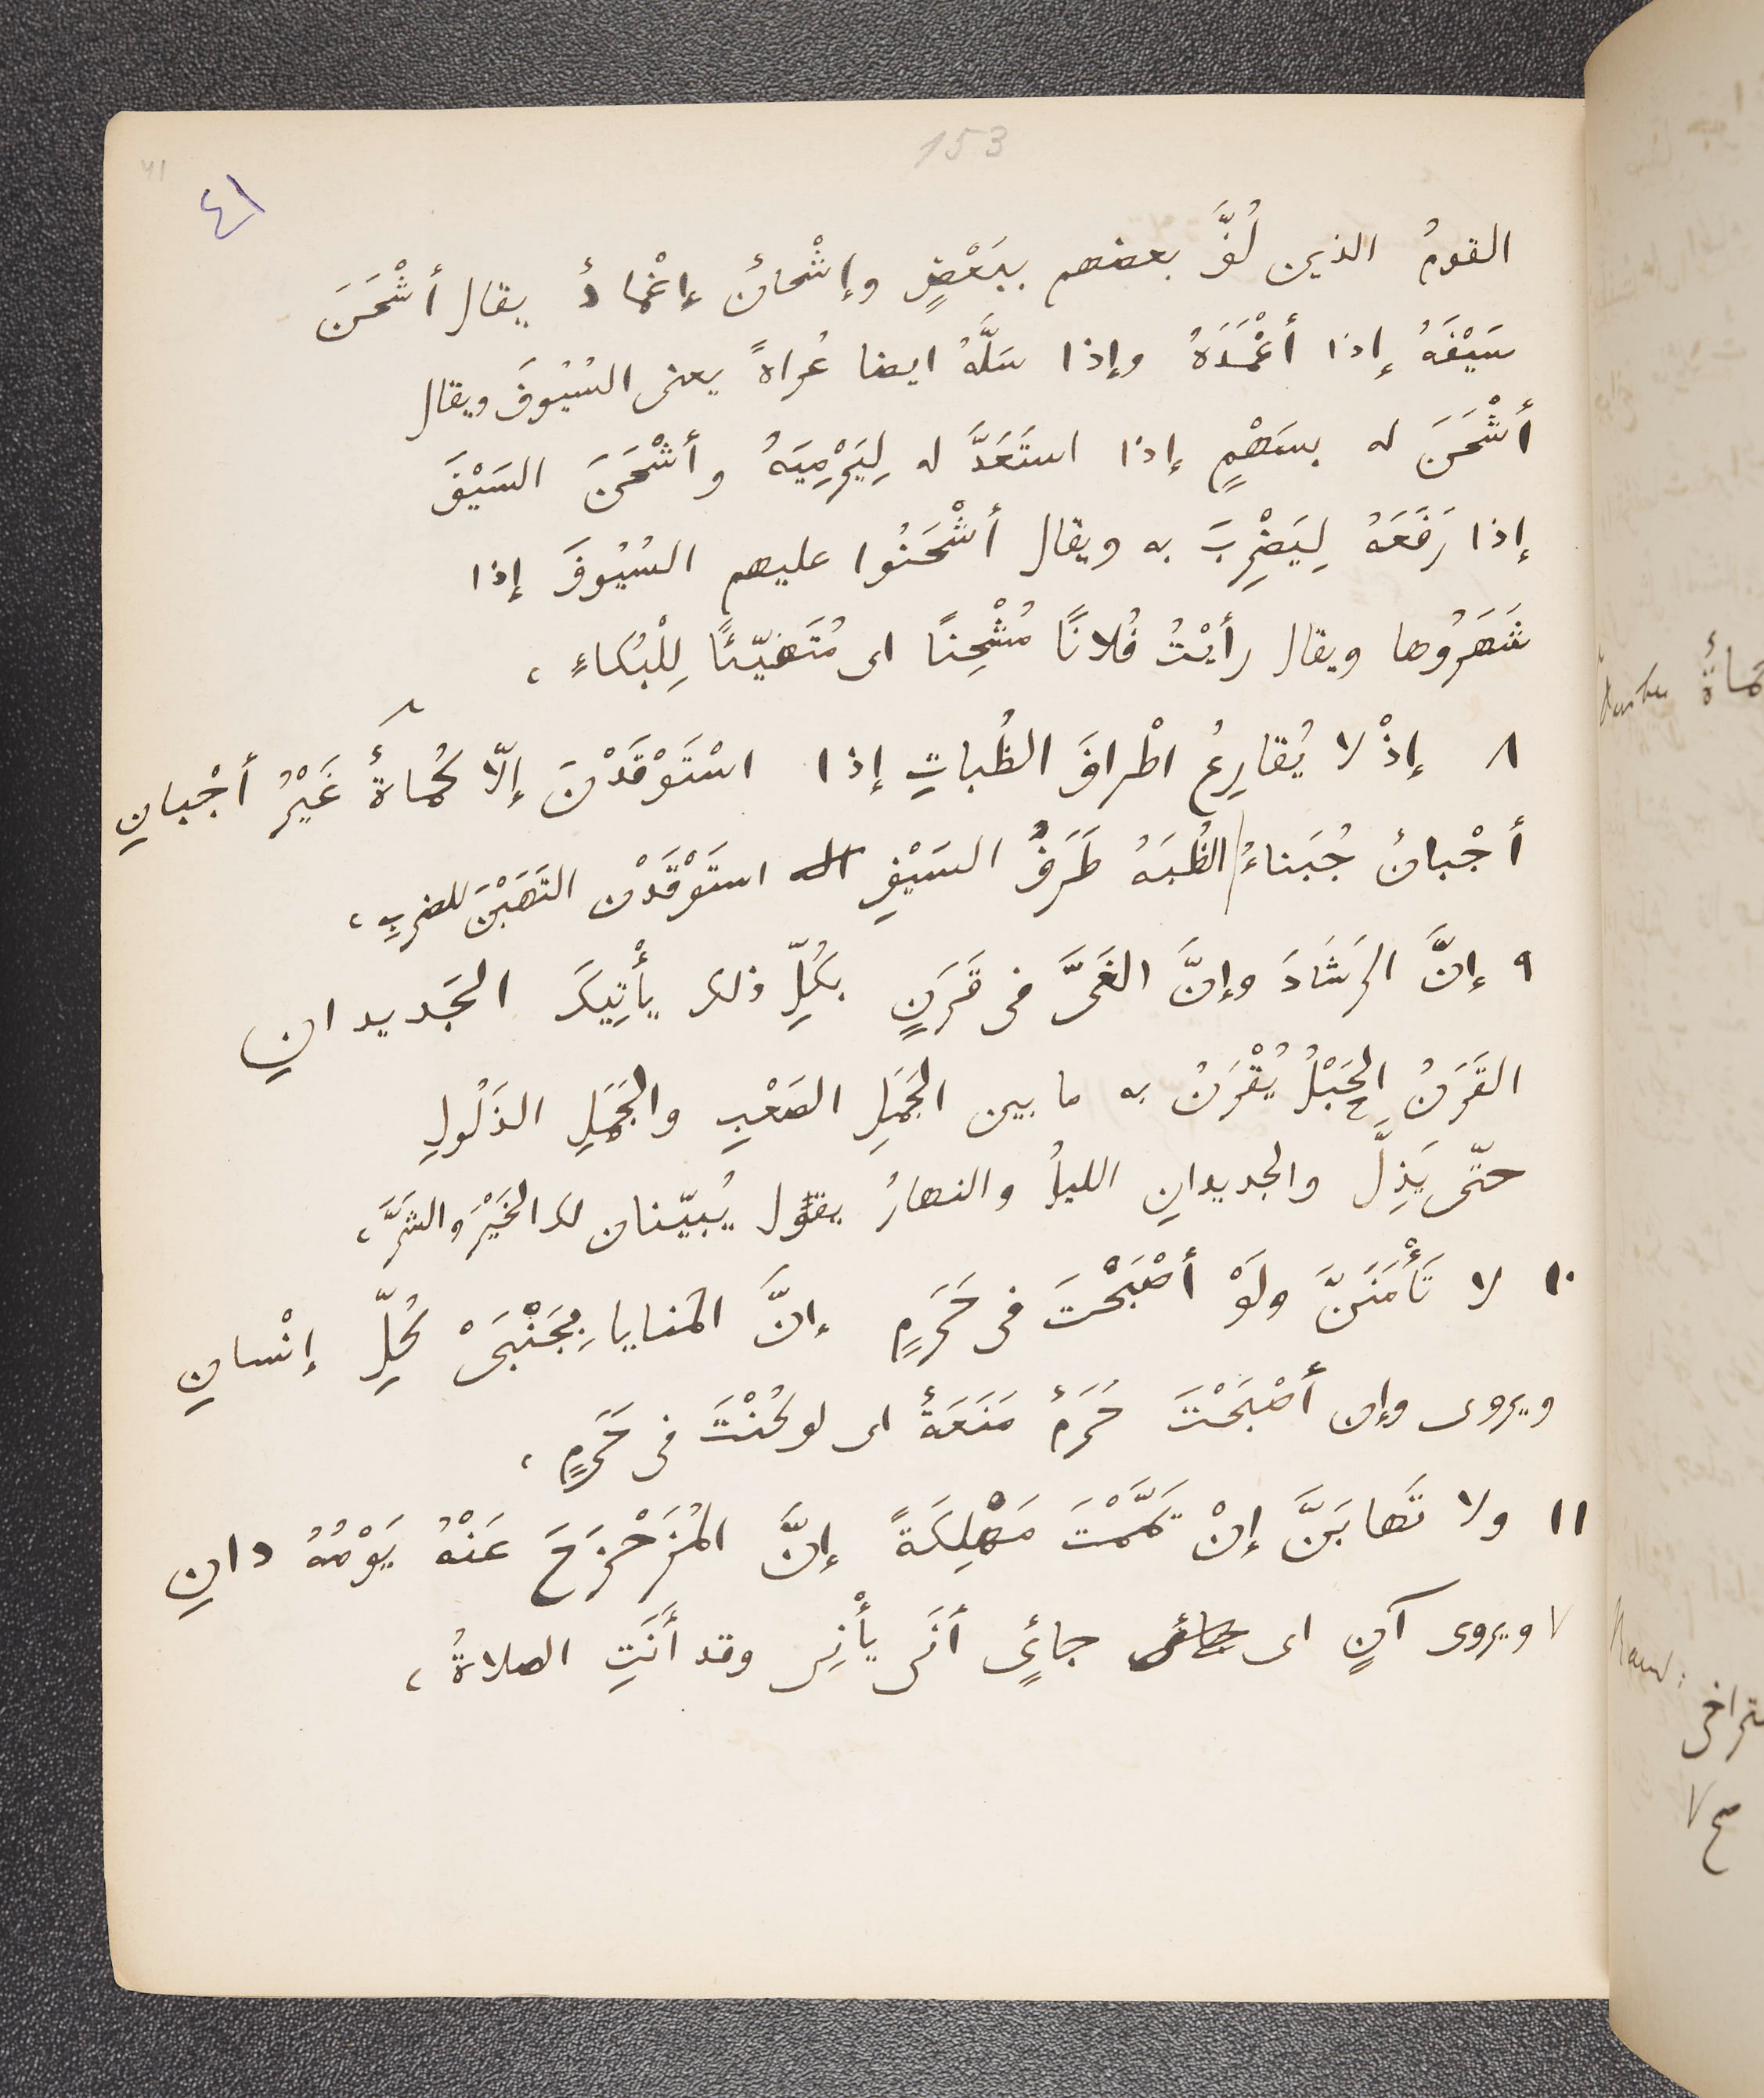 153
41
٤١
القومُ الذين لُفَّ بعضهم ببَعْضٍ وإشْحانٌ إغْمادٌ يقال أشْحَنَ
سَيْفَهُ إذا أغْمَدَهُ وإذا سَلَّهُ ايضا عُراةً يعنى السُيُوفَ ويقال
أشْحَنَ له بسَهْمٍ إذا استَعَدَّ له لِيَرْمِيَهُ وأشْحَنَ السَيْفَ
إذا رَفَعَهُ لِيَضْرِبَ به ويقال أشْحَنُوا عليهم السُيُوفَ إذا
شَهَرُوها ويقال رأيْتُ فُلانًا مُشْحِنًا اى مُتَهَيّئًا لِلْبُكاءِ ،
٨ إذْ لا يُقارِعُ اطْرافَ الظُباتِ إذا اسْتَوْقَدْنَ إلّا كُماةٌ غَيْرُ أجْبانِ
أجْبانٌ جُبَناءُ الظُبَةُ طَرَفُ السَيْفِ استَوْقَدْن التَهَبْنَ للضربِ ،
٩ إنَّ الرَشَادَ وإنَّ الغَىَّ فى قَرَنٍ بكُلِّ ذلك يأْتِيكَ الجَديدانِ
القَرَنُ الحَبْلُ يُقْرَنُ به ما بين الجَمَلِ الصَعْبِ والجَمَلِ الذَلُولِ
حتّى يَذِلَّ والجديدانِ الليلُ والنهارُ يقول يُبيّنان لك الخَيْرَ والشَرَّ ،
١٠ لا تَأْمَنَنَّ ولَوْ أصْبَحْتَ فى حَرَمٍ إنَّ المَنايا بِجَنْبَىْ كُلِّ إنْسانِ
ويروى وإن أصْبَحْتَ حَرَمٌ مَنَعَةٌ اى لو كُنْتَ فى حَرَمٍ ،
١١ ولا تَهابَنَّ إنْ يَمَّمْتَ مَهْلِكَةً إنَّ المُزَحْزَحَ عَنْهُ يَوْمُهُ دانِ
٧ ويروى آنٍ اى جاءٍى أنَى يأْنِى وقد أَنَتِ الصلاةُ ،